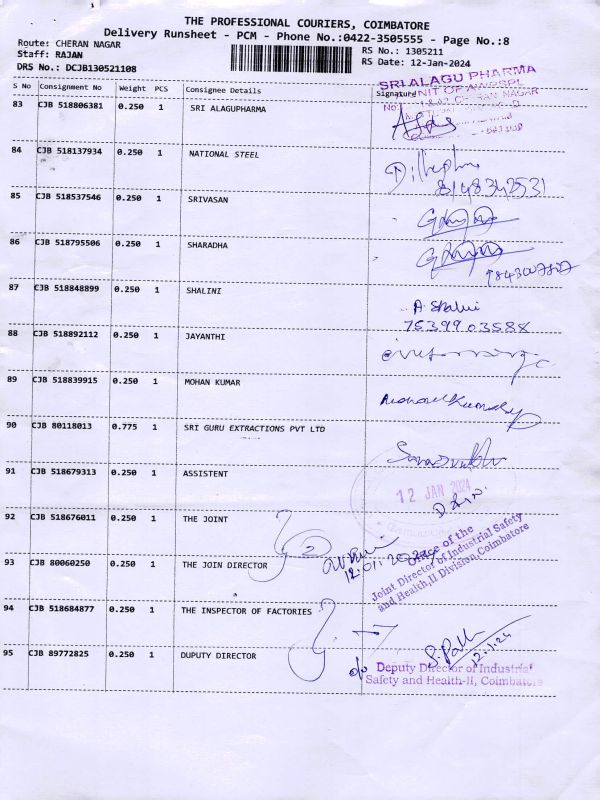 THE PROFESSIONAL COURIERS, COIMBATORE
Delivery Runsheet - PCM - Phone No.:0422-3505555 - Page No.:8
Route: CHERAN NAGAR
Staff: RAJAN
DRS No.: DCJB130521108
RS No.: 1305211
RS Date: 12-Jan-2024
S No Consignment No Weight PCS Consignee Details Signature
SRI ALAGU PHARMA
83 CJB 518806381 0.250 1 SRI ALAGUPHARMA
84 CJB 518137934 0.250 1 NATIONAL STEEL
8148342531
85 CJB 518537546 0.250 1 SRIVASAN
86 CJB 518795506 0.250 1 SHARADHA
87 CJB 518848899 0.250 1 SHALINI
A. Shalini
7539903588
88 CJB 518892112 0.250 1 JAYANTHI
89 CJB 518839915 0.250 1 MOHAN KUMAR
90 CJB 80118013 0.775 1 SRI GURU EXTRACTIONS PVT LTD
91 CJB 518679313 0.250 1 ASSISTENT
12 JAN 2024
92 CJB 518676011 0.250 1 THE JOINT
Office of the
Joint Director of Industrial Safety
and Health,II Division,Coimbatore
93 CJB 80060250 0.250 1 THE JOIN DIRECTOR
94 CJB 518684877 0.250 1 THE INSPECTOR OF FACTORIES
95 CJB 89772825 0.250 1 DUPUTY DIRECTOR
12.1.24
Deputy Director of Industrial
Safety and Health-II, Coimbatore